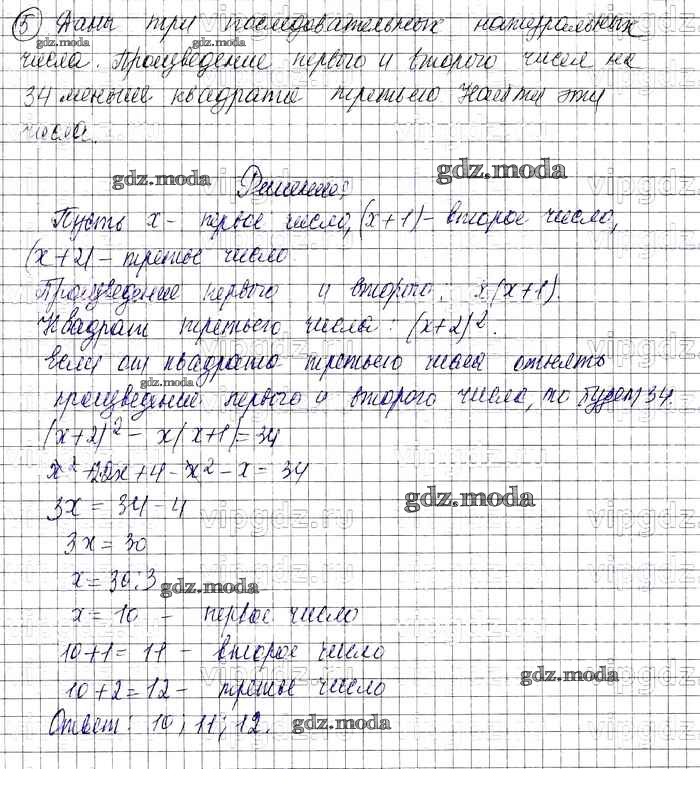 5 Даны три последовательных натуральных
числа. Произведение первого и второго чисел на
34 меньше квадрата третьего. Найти эти
числа.
Решение:
Пусть x - первое число, (x+1) - второе число,
(x+2) - третье число
Произведение первого и второго: x(x+1).
Квадрат третьего числа: (x+2)².
Если от квадрата третьего числа отнять
произведение первого и второго числа, то будет 34.
(x+2)² - x(x+1) = 34
x² + 2·2x + 4 - x² - x = 34
3x = 34 - 4
3x = 30
x = 30:3
x = 10 - первое число
10+1 = 11 - второе число
10+2 = 12 - третье число
Ответ: 10; 11; 12.
gdz.moda
vipgdz.ru